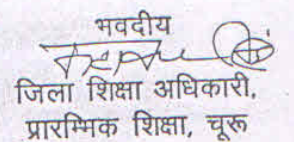 भवदीय
जिला शिक्षा अधिकारी,
प्रारम्भिक शिक्षा, चूरू